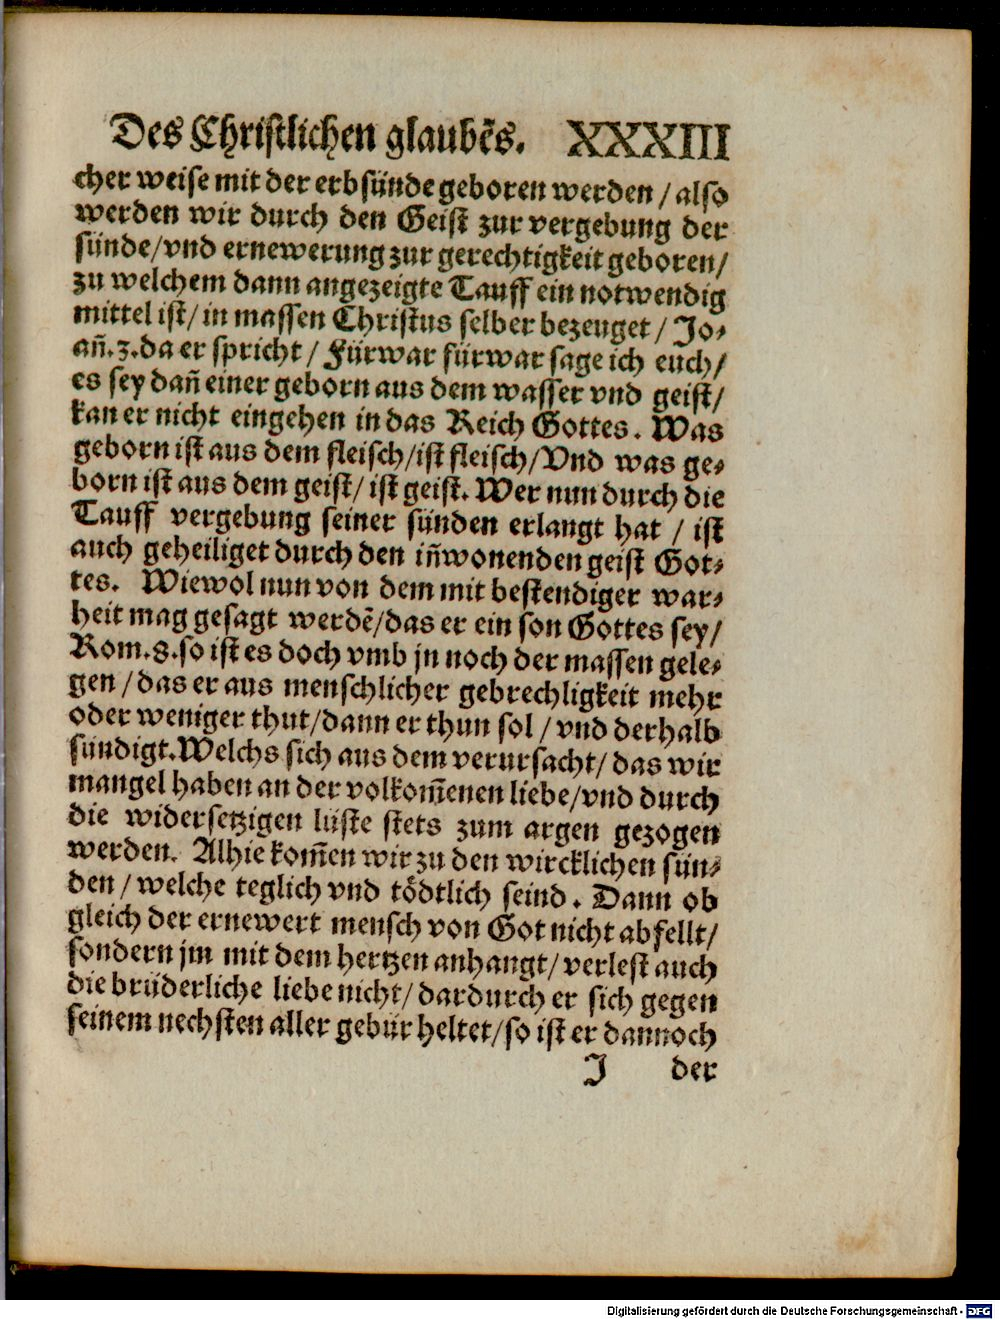 Des Christlichen glaubẽs. XXXIII
cher weise mit der erbsünde geboren werden / also
werden wir durch den Geist zur vergebung der
sünde/vnd ernewerung zur gerechtigkeit geboren/
zu welchem dann angezeigte Tauff ein notwendig
mittel ist/ in massen Christus selber bezeuget / Jo⸗
añ.3.da er spricht / Fürwar fürwar sage ich euch/
es sey dañ einer geborn aus dem wasser vnd geist/
kan er nicht eingehen in das Reich Gottes. Was
geborn ist aus dem fleisch/ist fleisch/Vnd was ge⸗
born ist aus dem geist/ ist geist. Wer nun durch die
Tauff vergebung seiner sünden erlangt hat / ist
auch geheiliget durch den iñwonenden geist Got⸗
tes. Wiewol nun von dem mit bestendiger war⸗
heit mag gesagt werdẽ/das er ein son Gottes sey/
Rom.8.so ist es doch vmb jn noch der massen gele⸗
gen / das er aus menschlicher gebrechligkeit mehr
oder weniger thut/dann er thun sol / vnd derhalb
sündigt.Welchs sich aus dem verursacht/ das wir
mangel haben an der volkom̃enen liebe/vnd durch
die widersetzigen lüste stets zum argen gezogen
werden. Alhie kom̃en wir zu den wircklichen sün⸗
den / welche teglich vnd tödtlich seind. Dann ob
gleich der ernewert mensch von Got nicht abfellt/
sondern jm mit dem hertzen anhangt/ verlest auch
die brüderliche liebe nicht/ dardurch er sich gegen
seinem nechsten aller gebür heltet/so ist er dannoch
J der
Digitalisierung gefördert durch die Deutsche Forschungsgemeinschaft - DFG